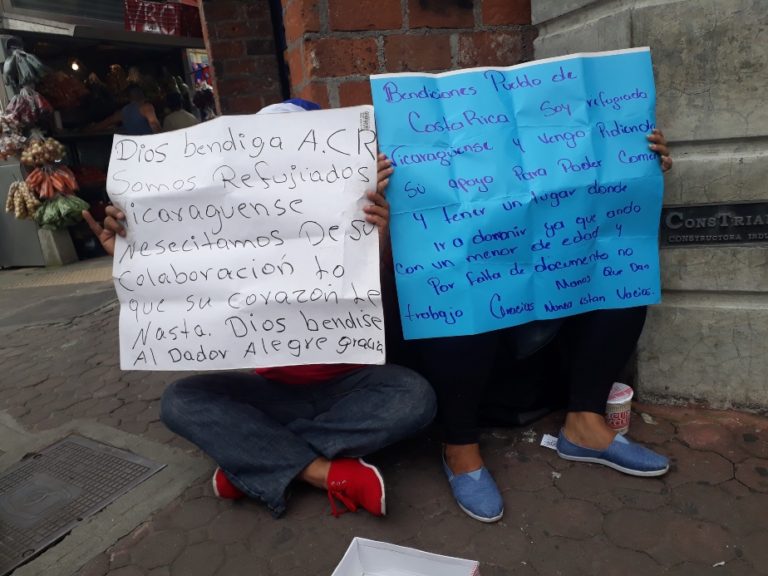 VRC
Dios bendiga A.C.R
Somos Refujiados
Nicaraguense
Nesecitamos De su
Colaboración lo
que su corazón le
Nasta. Dios bendise
Al Dador Alegre gracia
Bendiciones Pueblo de
Costa Rica Soy refugiada
Nicaragüense y vengo Pidiendo
su apoyo Para Poder Comer
y tener un lugar donde
Ir a dormir ya que ando
con un menor de edad y
Por falta de documento no
trabajo Gracias Manos Que Dan
Nunca están Vacías.
CONSTRIA
CONSTRUCTORA INDU